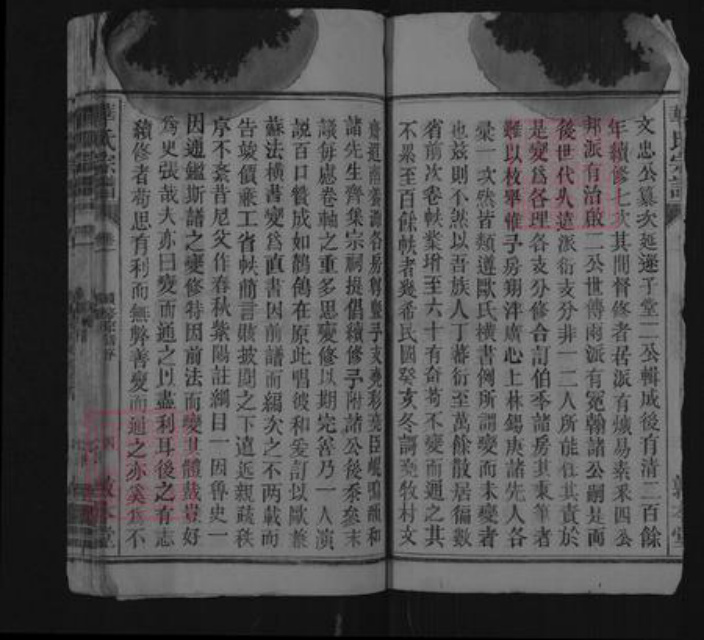 文忠公纂次延遜子堂二公輯成後有清二百餘
年續修七次其間督修者居派有燦易素采四公
邦派有治啟二公世傳兩派有冕翰諸公嗣是而
後世代久遠派衍支分非一二人所能任其責於
是變為各理各支分修合訂伯季諸房其秉筆者
難以枚舉惟予房翔泮廣心上林錫庚諸先人各
彙一次然皆類遵歐氏橫書例所謂變而未變者
也茲則不然以吾族人丁蕃衍至萬餘散居徧數
省前次卷帙業增至六十有奇苟不變而通之其
不累至百餘帙者幾希民國癸亥冬詞 牧村文
諸先生齊集宗祠提倡續修予附諸公後忝參末
議每慮卷軸之重多思變修以期完善乃一人演
說百口贊成如鶺鴒在原此唱彼和爰訂以歐兼
蘇法橫書變為直書因前譜而編次之不兩載而
告竣價廉工省帙簡言賅披閱之下遠近親疎秩
序不紊昔尼父作春秋紫陽註綱目一因魯史一
因通鑑斯譜之變修特因前法而變其體裁豈好
為更張哉夫亦曰變而通之以盡利耳後之有志
續修者苟思有利而無弊善變而通之亦奚為不
華氏宗譜
敦本堂